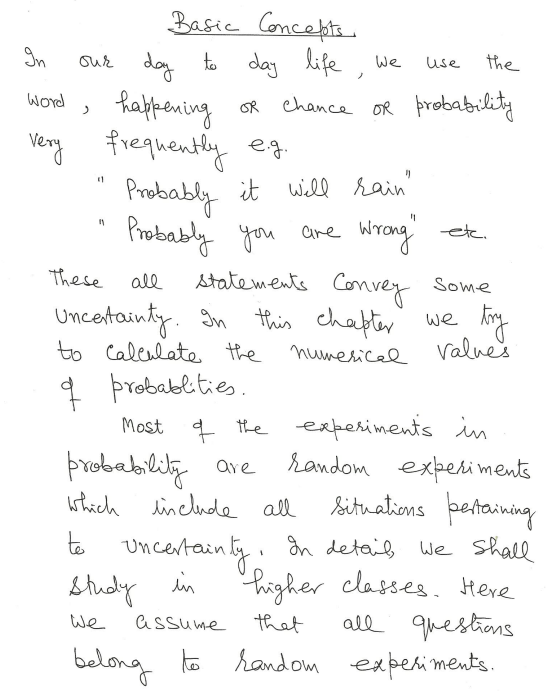 Basic Concepts.
In our day to day life, we use the
word, happening OR chance OR probability
very frequently e.g.
" Probably it will rain"
" Probably you are wrong" etc.
These all statements convey some
uncertainty. In this chapter we try
to calculate the numerical values
of probablities.
Most of the experiments in
probability are random experiments
which include all situations pertaining
to uncertainty. In detail, we shall
study in higher classes. Here
we assume that all questions
belong to random experiments.